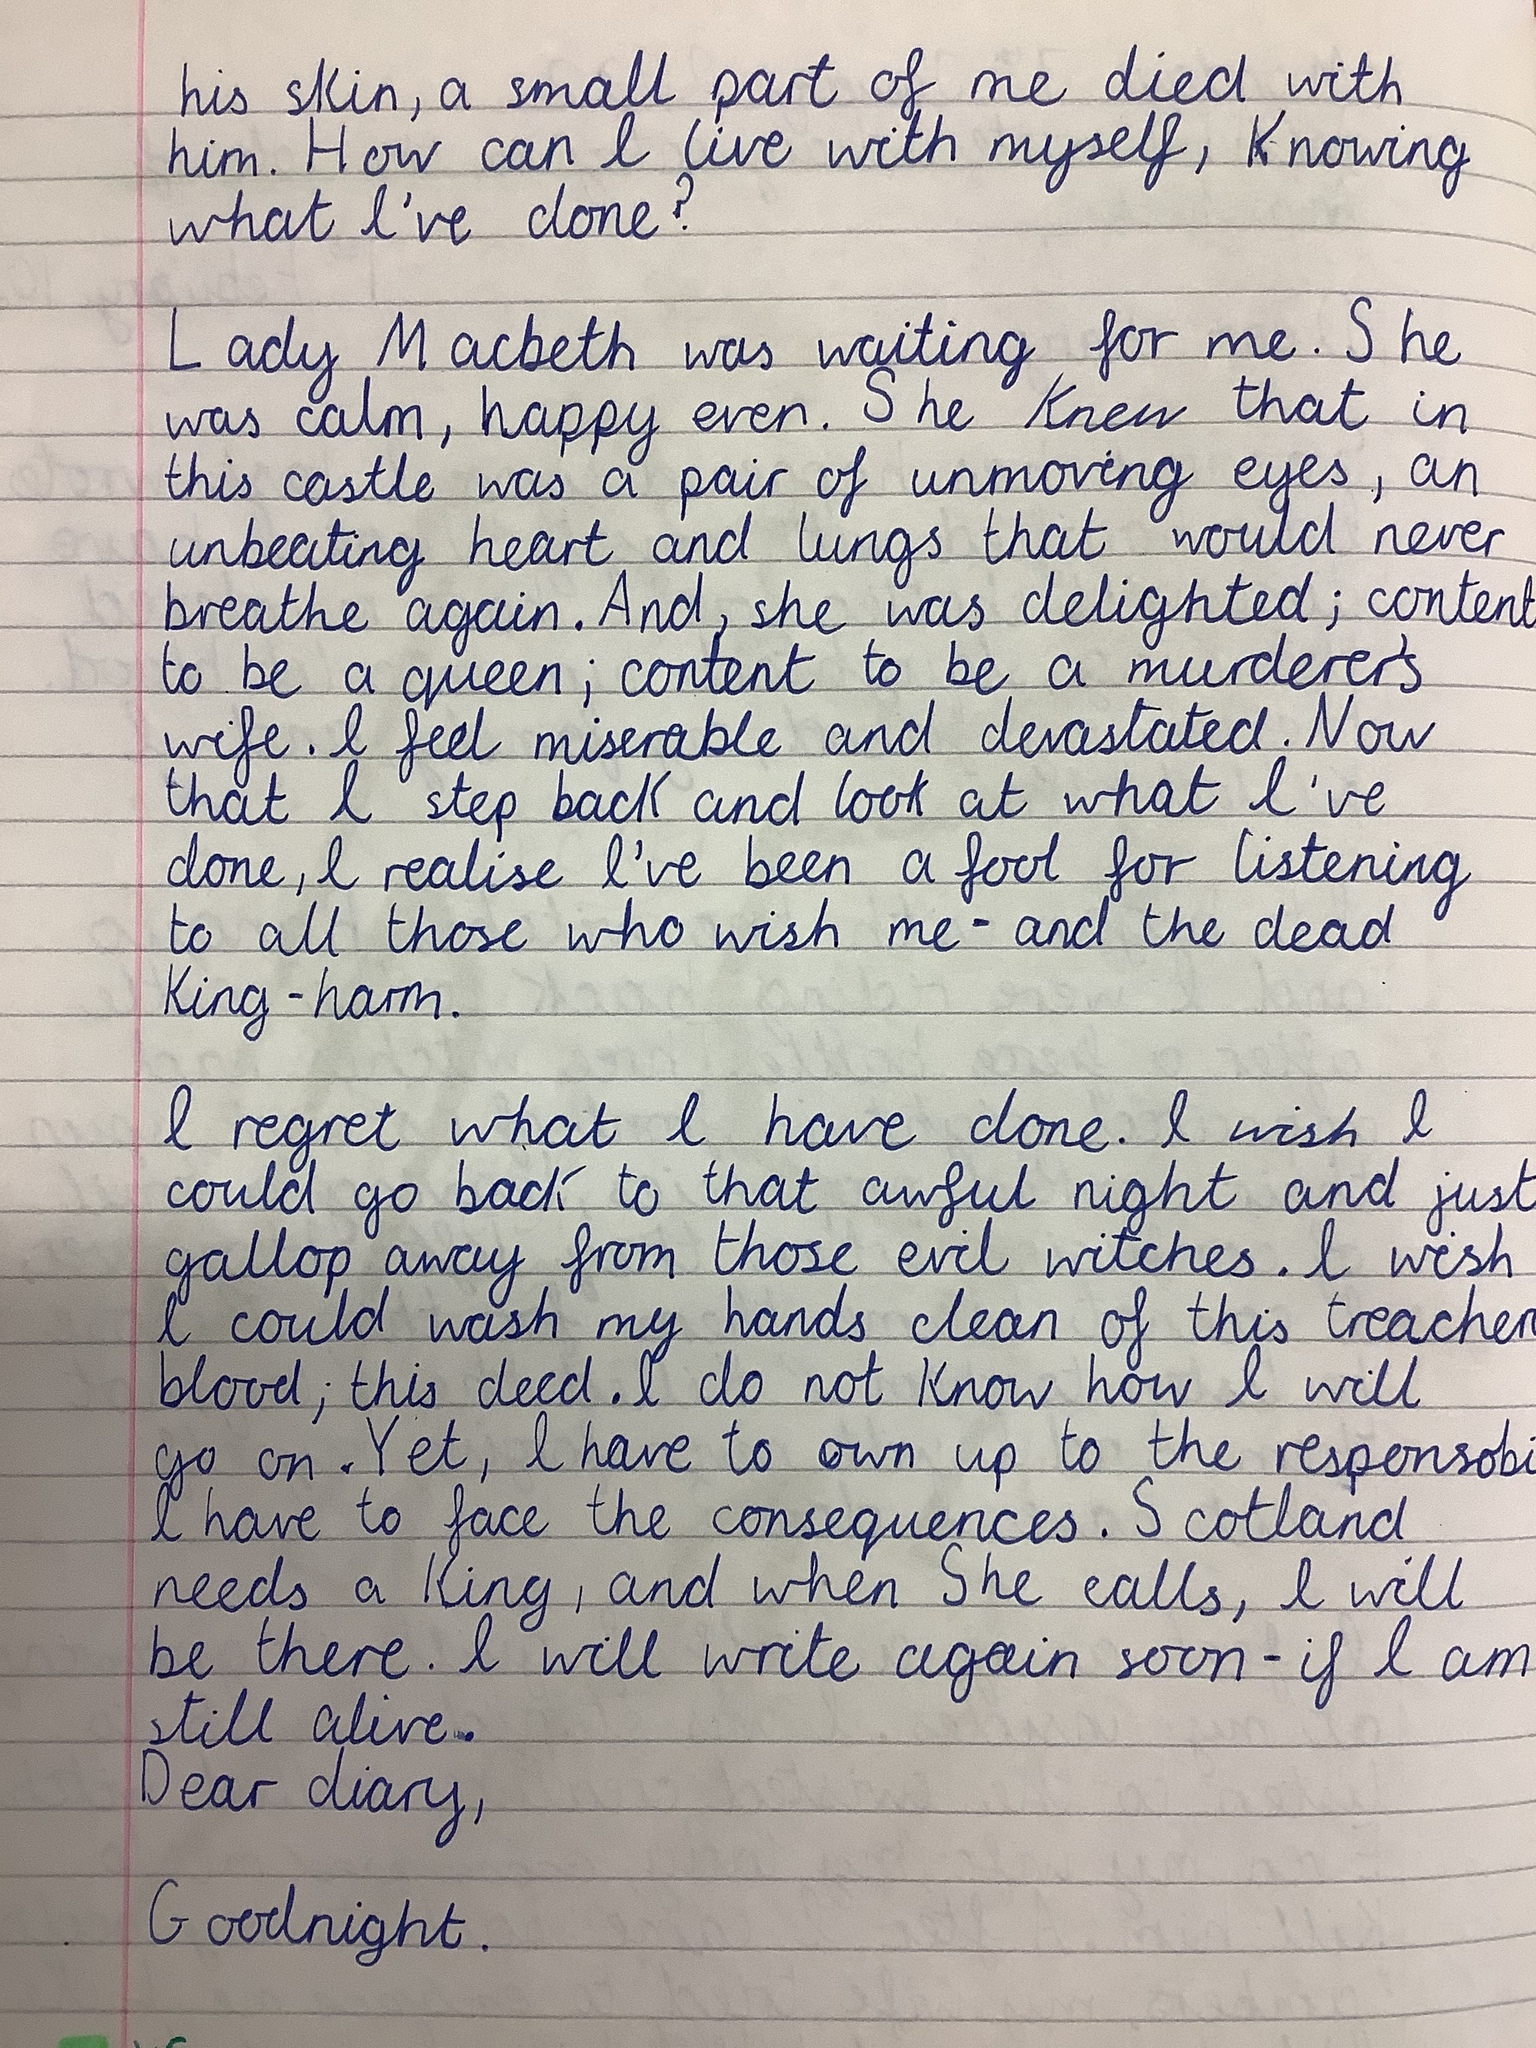 his skin, a small part of me died with
him. How can I live with myself, Knowing
what I've done?
Lady Macbeth was waiting for me. She
was calm, happy even. She Knew that in
this castle was a pair of unmoving eyes, an
unbeating heart and lungs that would never
breathe again. And, she was delighted; content
to be a queen; content to be a murderer's
wife. I feel miserable and devastated. Now
that I step back and look at what I've
done, I realise I've been a fool for listening
to all those who wish me - and the dead
King - harm.
I regret what I have done. I wish I
could go back to that awful night and just
gallop away from those evil witches. I wish
I could wash my hands clean of this treacher
blood; this deed. I do not Know how I will
go on. Yet, I have to own up to the responsobi
I have to face the consequences. Scotland
needs a King, and when She calls, I will
be there. I will write again soon - if I am
still alive.
Dear diary,
Goodnight.